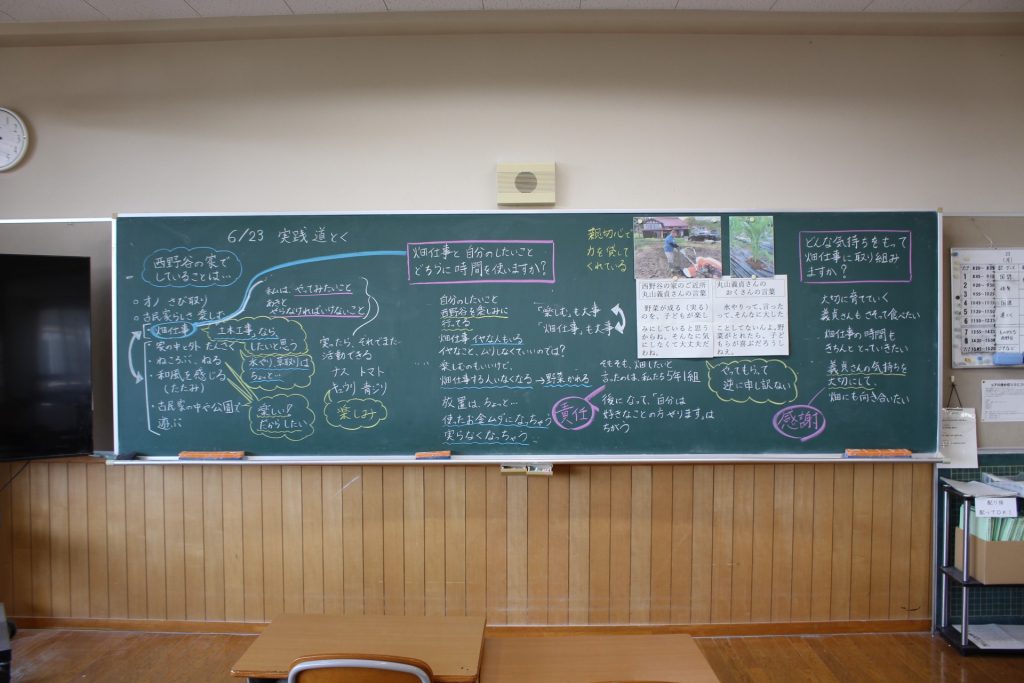 6/23 実践 道とく
西野谷の家で
していることは…
・オノ さび取り
・古民家らしさ 楽しむ
・畑仕事
・家の中と外 たんけん
・ねころぶ、ねる
・和風を感じる
(たたみ)
・古民家の中や公園で
遊ぶ
私は、やってみたいこと
やらなければいけないこと
土木工事なら、
したいと思う
水やり、草取りは
ちょっと…
楽しい!
だからしたい
実ったら、それでまた
活動できる
ナス トマト
キュウリ
楽しみ
畑仕事と自分のしたいこと
どちらに時間を使いますか?
自分のしたいこと
西野谷を楽しみに
行ってる
畑仕事 イヤな人もいる
イヤなこと、ムリしなくていいのでは?
楽しむのもいいけど、
畑仕事する人いなくなる → 野菜かれる
放置は、ちょっと…
使ったお金ムダになっちゃう
実らなくなっちゃう
「楽しむ」も大事
「畑仕事」も大事
そもそも、畑したいと
言ったのは、私たち5年1組
後になって、「自分は
好きなことの方やります」は
ちがう
責任
親切心で
力を貸して
くれている
西野谷の家のご近所
丸山義貞さんの言葉
野菜が成る(実る)
のを、子どもが楽し
みにしていると思う
からね。そんなに気
にしなくて大丈夫だ
むね。
丸山義貞さんの
おくさんの言葉
水やりって、言った
って、そんなに大した
ことしてないんよ。野
菜がとれたら、子ど
もらが喜ぶだろうし
ねぇ。
やってもらって
逆に申し訳ない
どんな気持ちをもって
畑仕事に取り組み
ますか?
大切に育てていく
義貞さんもさそって食べたい
畑仕事の時間も
きちんととっていきたい
義貞さんの気持ちを
大切にして、
畑にも向き合いたい
感謝
配り係
配ってOK!